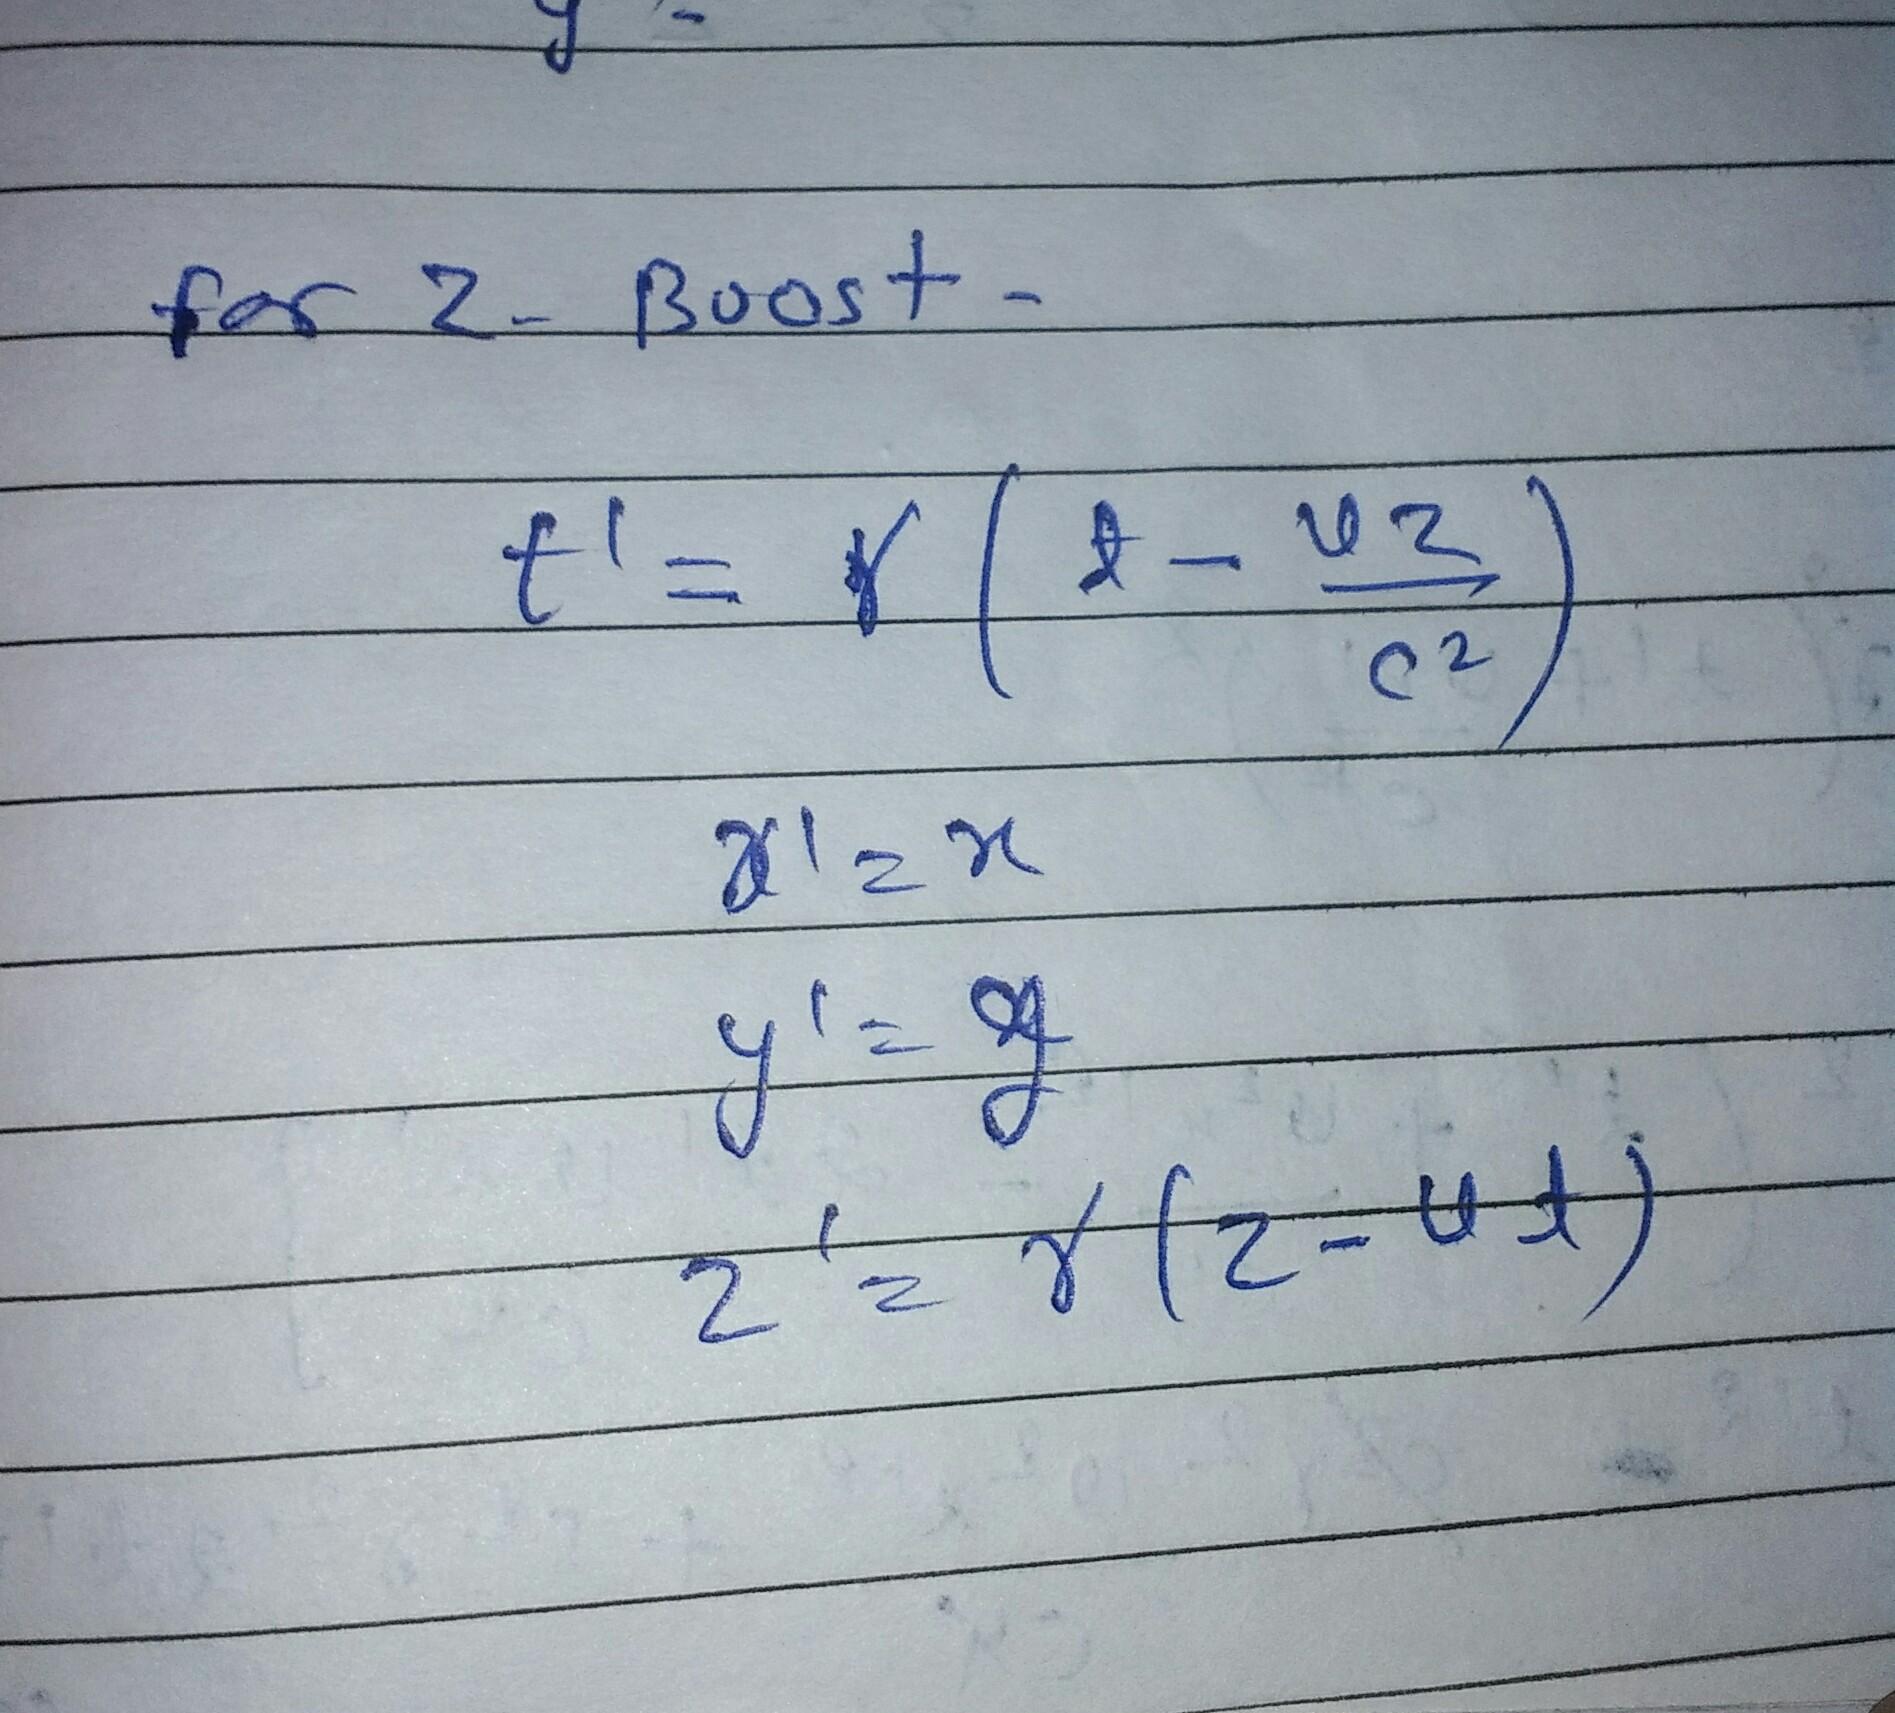 y =
for z - Boost -
t' = γ ( t - vz / c² )
x' = x
y' = y
z' = γ ( z - vt )